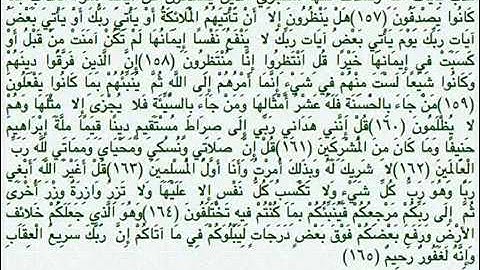 كَانُوا يَصْدِفُونَ (١٥٧)هَلْ يَنْظُرُونَ إِلا أَنْ تَأْتِيَهُمُ الْمَلائِكَةُ أَوْ يَأْتِيَ رَبُّكَ أَوْ يَأْتِيَ بَعْضُ
آيَاتِ رَبِّكَ يَوْمَ يَأْتِي بَعْضُ آيَاتِ رَبِّكَ لا يَنْفَعُ نَفْسًا إِيمَانُهَا لَمْ تَكُنْ آمَنَتْ مِنْ قَبْلُ أَوْ
كَسَبَتْ فِي إِيمَانِهَا خَيْرًا قُلِ انْتَظِرُوا إِنَّا مُنْتَظِرُونَ (١٥٨)إِنَّ الَّذِينَ فَرَّقُوا دِينَهُمْ
وَكَانُوا شِيَعًا لَسْتَ مِنْهُمْ فِي شَيْءٍ إِنَّمَا أَمْرُهُمْ إِلَى اللَّهِ ثُمَّ يُنَبِّئُهُمْ بِمَا كَانُوا يَفْعَلُونَ
(١٥٩)مَنْ جَاءَ بِالْحَسَنَةِ فَلَهُ عَشْرُ أَمْثَالِهَا وَمَنْ جَاءَ بِالسَّيِّئَةِ فَلا يُجْزَى إِلا مِثْلَهَا وَهُمْ
لا يُظْلَمُونَ (١٦٠)قُلْ إِنَّنِي هَدَانِي رَبِّي إِلَى صِرَاطٍ مُسْتَقِيمٍ دِينًا قِيَمًا مِلَّةَ إِبْرَاهِيمَ
حَنِيفًا وَمَا كَانَ مِنَ الْمُشْرِكِينَ (١٦١)قُلْ إِنَّ صَلاتِي وَنُسُكِي وَمَحْيَايَ وَمَمَاتِي لِلَّهِ رَبِّ
الْعَالَمِينَ (١٦٢)لا شَرِيكَ لَهُ وَبِذَلِكَ أُمِرْتُ وَأَنَا أَوَّلُ الْمُسْلِمِينَ (١٦٣)قُلْ أَغَيْرَ اللَّهِ أَبْغِي
رَبًّا وَهُوَ رَبُّ كُلِّ شَيْءٍ وَلا تَكْسِبُ كُلُّ نَفْسٍ إِلا عَلَيْهَا وَلا تَزِرُ وَازِرَةٌ وِزْرَ أُخْرَى
ثُمَّ إِلَى رَبِّكُمْ مَرْجِعُكُمْ فَيُنَبِّئُكُمْ بِمَا كُنْتُمْ فِيهِ تَخْتَلِفُونَ (١٦٤)وَهُوَ الَّذِي جَعَلَكُمْ خَلائِفَ
الأرْضِ وَرَفَعَ بَعْضَكُمْ فَوْقَ بَعْضٍ دَرَجَاتٍ لِيَبْلُوَكُمْ فِي مَا آتَاكُمْ إِنَّ رَبَّكَ سَرِيعُ الْعِقَابِ
وَإِنَّهُ لَغَفُورٌ رَحِيمٌ (١٦٥)